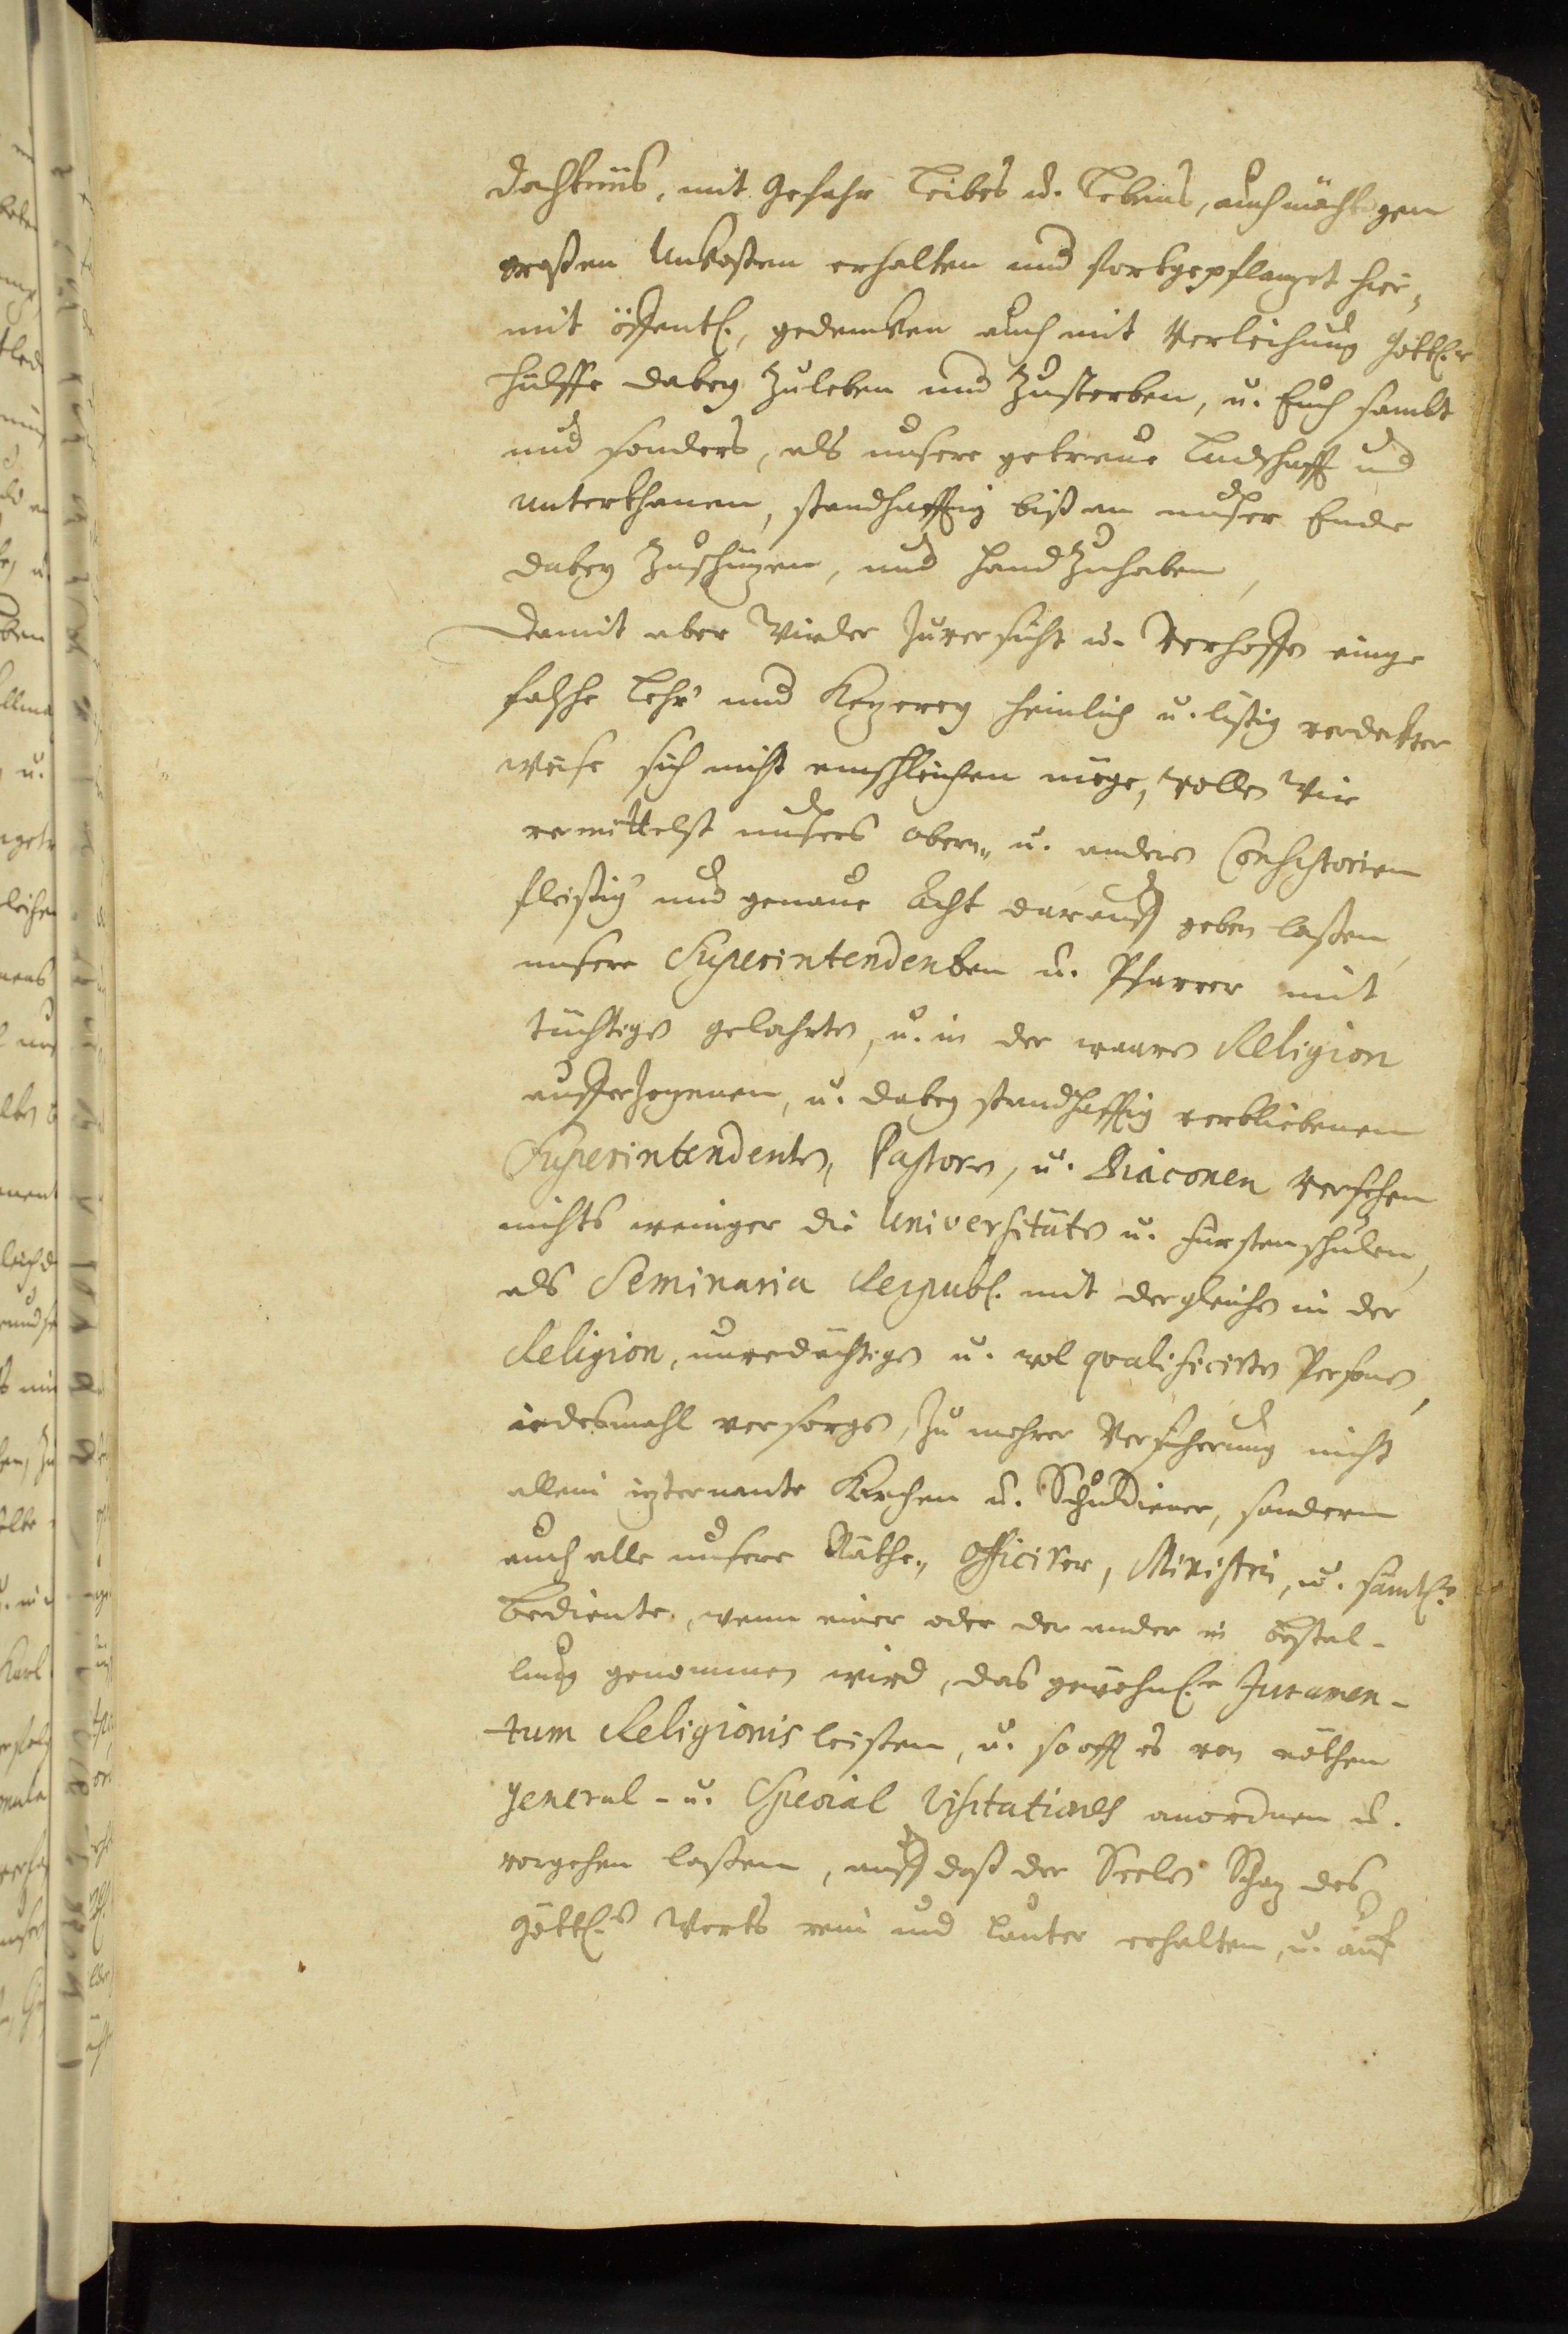 dachtnüs, mit Gefahr Leibes u. Lebens, auch mächtigen
großen Unkosten erhalten und fortgepflanzet hier„
mit öffentl., gedenken auch mit Verleihung Göttl.r
Hülffe dabey zuleben und zusterben, u. Euch sambt
und sonders, als unsere getreue Landschafft und
Unterthanen, standhafftig biß an unser Ende
dabey zuschüzen, und handzuhaben,
Damit aber Wieder Zuversicht u. Verhoffen einge
falsche Lehr und Kezerey heimlich u. listig verdekter
weise sich nicht einschleichen möge, wollen Wir
vermittelst unsers obern„ u. andern Consistorien
fleißig und genaue Acht darauff geben laßen,
unsere Superintendenten u. Pfarrer mit
tüchtigen gelahrten, u. in der waaren Religion
aufferzogenen, u. dabey standhafftig verbliebenen
Superintendenten, Pastoren, u. Diaconen versehen
nichts weniger die Universitäten u. Fürstenschulen,
als Seminaria Reipubl. mit dergleichen in der
Religion, unverdächtigen u. wol qvalificirten Personen,
iedesmahl versorgen, zu mehrer Versicherung nicht
allein izternante Kirchen u. Schuldiener, sondern
auch alle unsere Räthe„ Officirer, Ministri, u. sämtl.e
bediente, wenn einer oder der ander in bestal-
lung genommen wird, das gewöhnl.e Juramen-
tum Religionis leisten, u. so offt es von nöthen
General- u. Special Visitationes anordnen u.
vorgehen laßen, auff daß der Seelen Schaz des
göttl.n Worts rein und lauter erhalten, u. auf